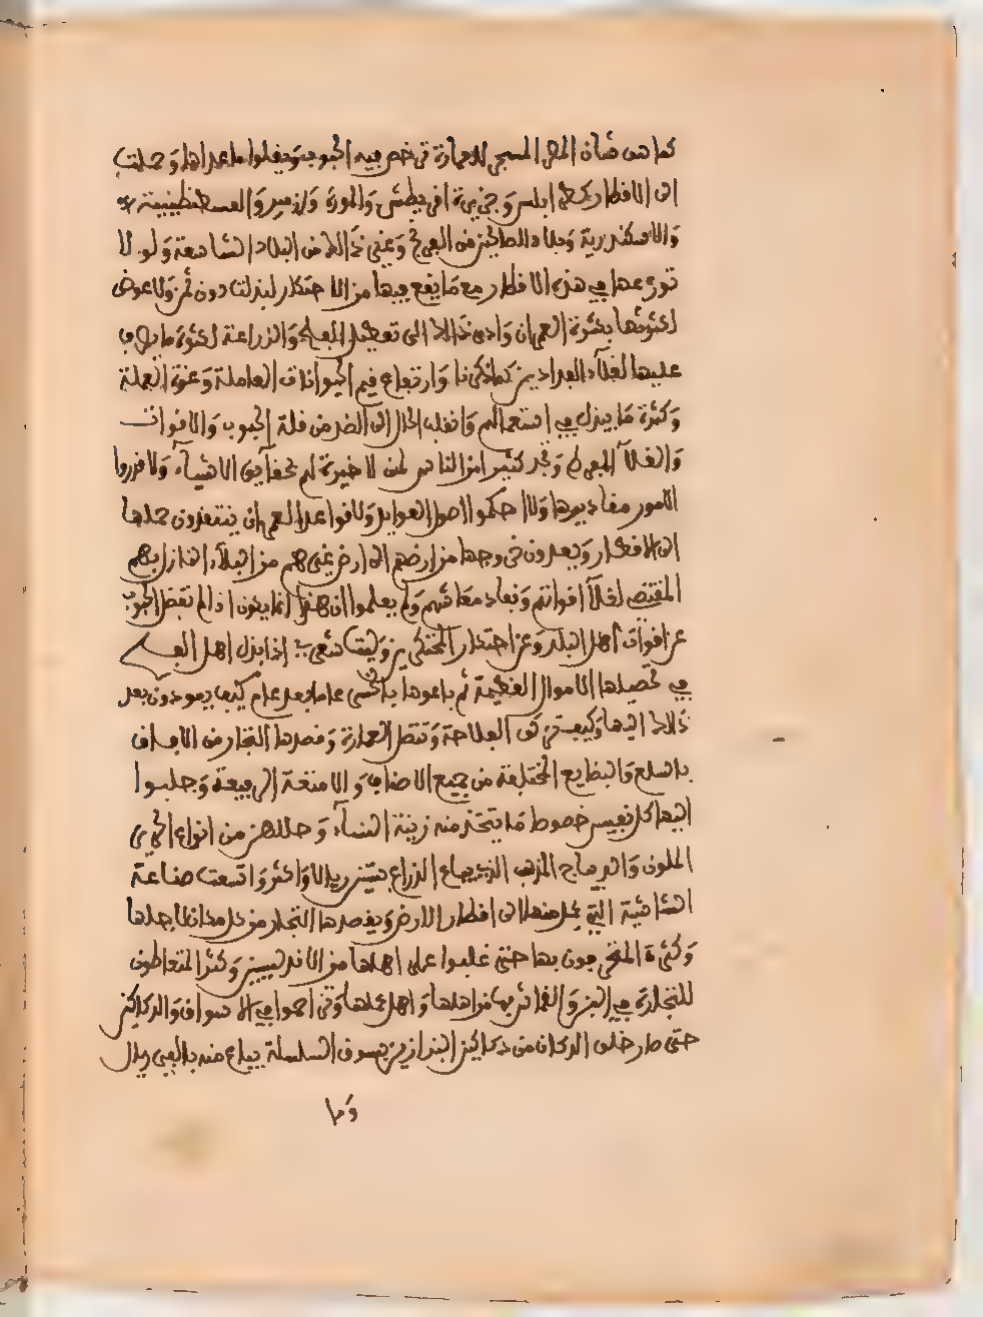 كما هي شأن المطر المسجي للعمارة ترخص فيه الحبوب ويغلوا ما عداها وحملت
الى الاقطار كطرابلس وجزيرة اقريطش والمورة وازمير والقسطنطينية
والاسكندرية وبلاد الصالحين من الفرنج وغير ذالك من البلاد الشاسعة ولو لا
توزعها في هذه الاقطار مع ما يقع فيها من الاحتكار لبذلت دون ثمن ولا عوض
لكثرتها بكثرة العمران وادى ذالك الى تعطيل الفلح والزراعة لكثرة ما يصرف
عليها لغلآء الفدادين كما ذكرنا وارتفاع قيم الحيوانات العاملة وعزة العملة
وكثرة ما ينزل في استعمالهم وانقلب الحال الى الضر من قلة الحبوب والاقوات
والغلآ المفرط وتجد كثيرا من الناس لمن لا خبرة لهم بحقآيق الاشيآء ولا قدروا
الامور مقاديرها ولا احكموا اصول العوايد ولا قواعد العمران ينتقدون حملها
الى الاقطار ويعدون خروجها من ارضهم الى ارض غيرهم من البلآء النازل بهم
المقتضي لغلآ اقواتهم ونفاد معاشهم ولم يعلموا ان هذا انما يكون اذا لم تفضل الحبوب
عن اقوات اهل البلد وعن احتكار المحتكرين وليت شعري إذا بذل اهل الفلح
في تحصيلها الاموال العظيمة ثم باعوها بالبخس عاما بعد عام كيف يعودون بعد
ذلك اليها وكيف ترتكب الفلاحة وتنتظم العمارة وقصدها التجار من الافاق
بالسلع والبضايع المختلفة من جميع الاصناف والامتعة الرفيعة وجلبوا
اليها كل نفيس خصوصا ما يتخذ منه زينة النسآء وحللهن من انواع الحرير
الملون والديباج المذهب الذي يباع الذراع بستين ريالا واكثر واتسعت صناعة
الشاشية التي يحمل منها الى اقطار الارض ويقصدها التجار من كل مكان لاجلها
وكثرة المتحرفون بها حتى غلبوا على اهلها من الاندلسيين وكثر المتعاطون
للتجارة في البز والقمائش بها من اهلها واهل عملها وتزاحموا في الاسواق والدكاكين
حتى صار خلو الدكان من دكاكين البزازين بسوق السلسلة يباع منه بالفي ريال
وما